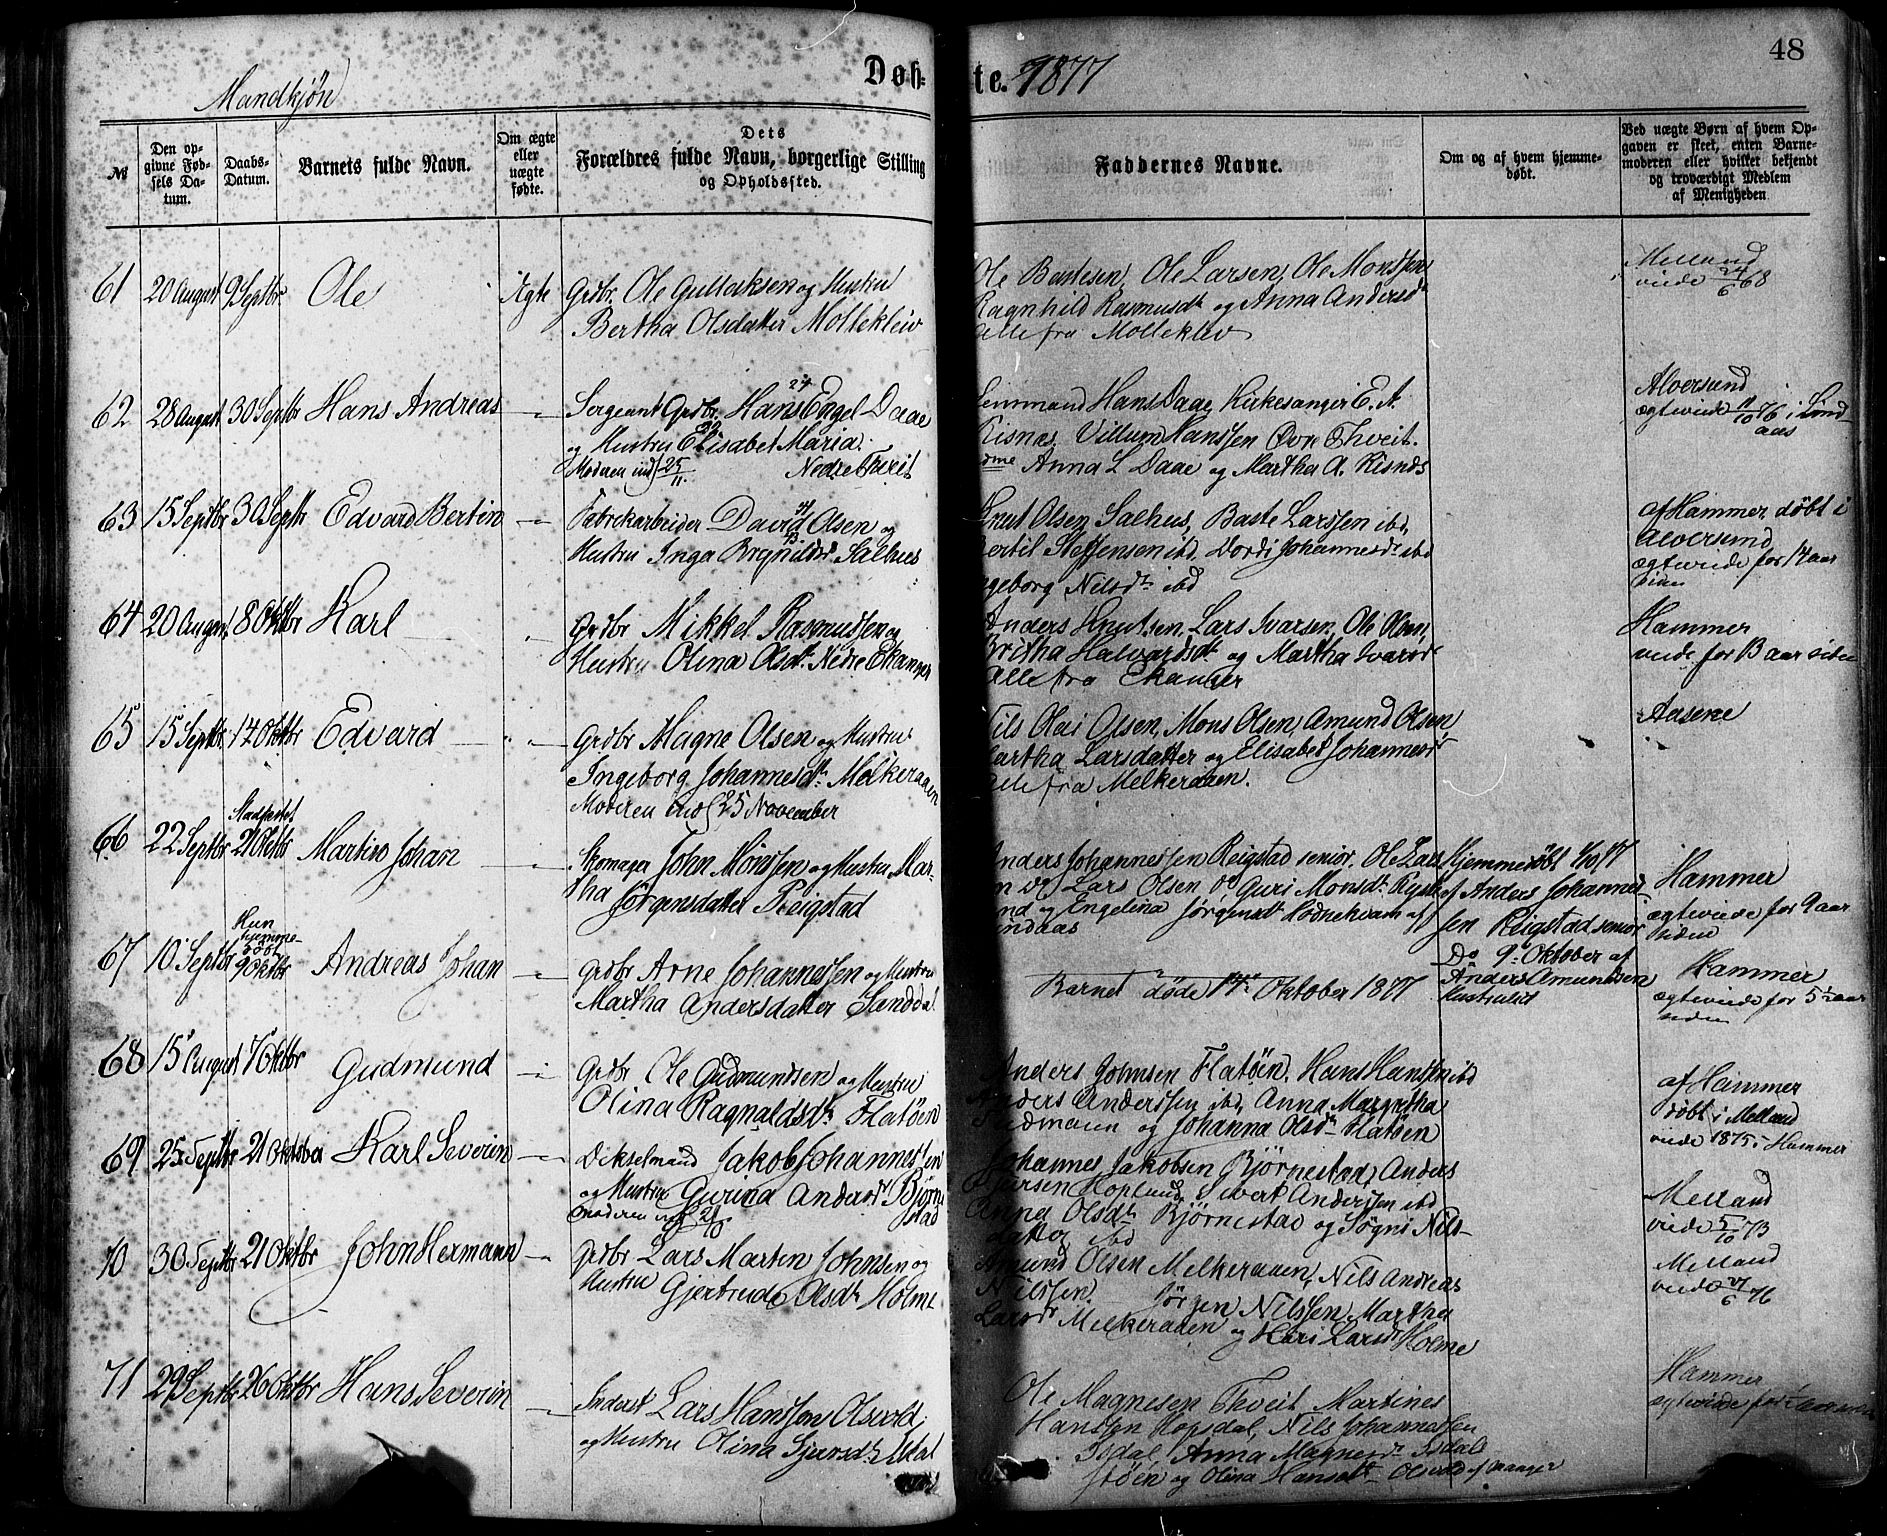 48
Mandkjøn
Døb- te. 1877
№
Den opgivne Fødsels Datum.
Daabs-Datum.
Barnets fulde Navn.
Om ægte eller uægte fødte.
Dets Forældres fulde Navn, borgerlige Stilling og Opholdssted.
Faddernes Navne.
Om og af hvem hjemmedøbt.
Ved uægte Børn af hvem Opgaven er skeet, enten Barnemoderen eller hvilket bekjendt og troværdigt Medlem af Menigheden
61 20 August 9 Septbr Ole Ægte Grdbr. Ole Gullaksen og Hustru
Bertha Olsdatter Molleklev
Ole Bastesen, Ole Larsen, Ole Monssen
Ragnhild Rasmusdt og Anna Andersdt
alle fra Molleklev
Melland
viede 24/6 68
62 28 August 30 Septbr Hans Andreas — Sergeant Grdbr. Hans Engel Daae
og Hustru Elisabet Maria
Moderen ind 25/11. Nedre Tveit
Lensmand Hans Daae, Kirkesanger E. A.
Risnes. Villum Hanssen Øvre Thveit.
Anna L Daae og Martha A. Risnes
Alversund
ægteviede 11/10 76 i Lind
aas
63 15 Septbr 30 Septbr Edvard Bertin — Fabrikarbeider David Olsen og
Hustru Inga Brynildsdt Salhus
Knut Olsen Salhus, Baste Larssen ibd,
Bertil Steffensen ibd. Dordi Johannesdt ibd
Ingeborg Nilsdt ibd
af Hammer, døbt i
Alversund
ægteviede for 14 aar
siden
64 20 August 8 Oktbr Karl — Grdbr Mikkel Rasmussen og
Hustru Olina Olsdt. Nedre Ekanger
Anders Knutsen, Lars Ivarsen, Ole Olsen,
Britha Halvardsdt og Martha Ivarsdt
Alle fra Ekanger
Hammer
viede for 13 aar siden
65 15 Septbr 14 Oktbr Edvard — Grdbr Magne Olsen og Hustru
Ingeborg Johannesdt. Melkeraaen
Moderen ind 25 November
Nils Olai Olsen, Mons Olsen, Amund Olsen
Martha Larsdatter og Elisabet Johannesdt
alle fra Melkeraaen.
Aasene
66 22 Septbr Stadfæstet 21 Oktbr Martin Johan — Skomager John Mønssen og Hustru Mar-
tha Jørgensdatter Reigstad
Anders Johannessen Reigstad senior. Ole Lars
en og Lars Olsen do Guri Monsdt.
og Engelina Jørgensdt Hodnekvam af
Lindaas
Hjemmedøbt 4/10 77
af Anders Johannes-
sen Reigstad senior
Hammer
ægteviede for 9 aar
siden
67 10 Septbr Kun hjemmedøbt 9 Oktbr Andreas Johan — Grdbr Arne Johannessen og Hustru
Martha Andersdatter Sanddal
Barnet døde 14 Oktober 1877
Do 9 Oktober af
Anders Amundsen
Hammer
ægteviede for 5½ aar
siden
68 15 August 7 Oktbr Gudmund — Grdbr Ole Gudmundsen og Hustru
Olina Ragnaldsdt. Flatøen
Anders Johnsen Flatøen. Hans Hansen ibd
Anders Anderssen ibd, Anna Margretha
og Johanna Olsdt Flatøen
af Hammer
døbt i Melland
viede 1875 i Hammer
69 25 Septbr 21 Oktober Karl Severin — Dikselmand Jakob Johannessen
og Hustru Gurina Andersdt Bjørne
stad
Moderen ind 21/10
Johannes Jakobsen Bjørnestad, Anders
Hopland, Sivert Anderssen ibd
Anna Olsdt Bjørnestad og Søgni Nils-
datter ibd
Melland
viede 5/10 73
70 30 Septbr 21 Oktbr John Hermann — Grdbr Lars Martin Johnsen og
Hustru Gjertrude Olsdt Holme
Amund Olsen Melkeraaen, Nils Andreas
Nilssen. Jørgen Nilssen, Martha
Larsdt Melkeraaen og Kari Larsdt Holme
Melland
viede 24/6 76
71 29 Septbr 26 Oktbr Hans Severin — Inderst Lars Hanssen Olsvold
og Hustru Olina Sjursdt. Isdal
Ole Magnesen Thveit, Martines
Hansen Hopsdal, Nils Johannessen
Isdal, Anna Magnesdt Isdal
støen og Olina Hansdt Olsvold af Manger
Hammer
ægteviede for